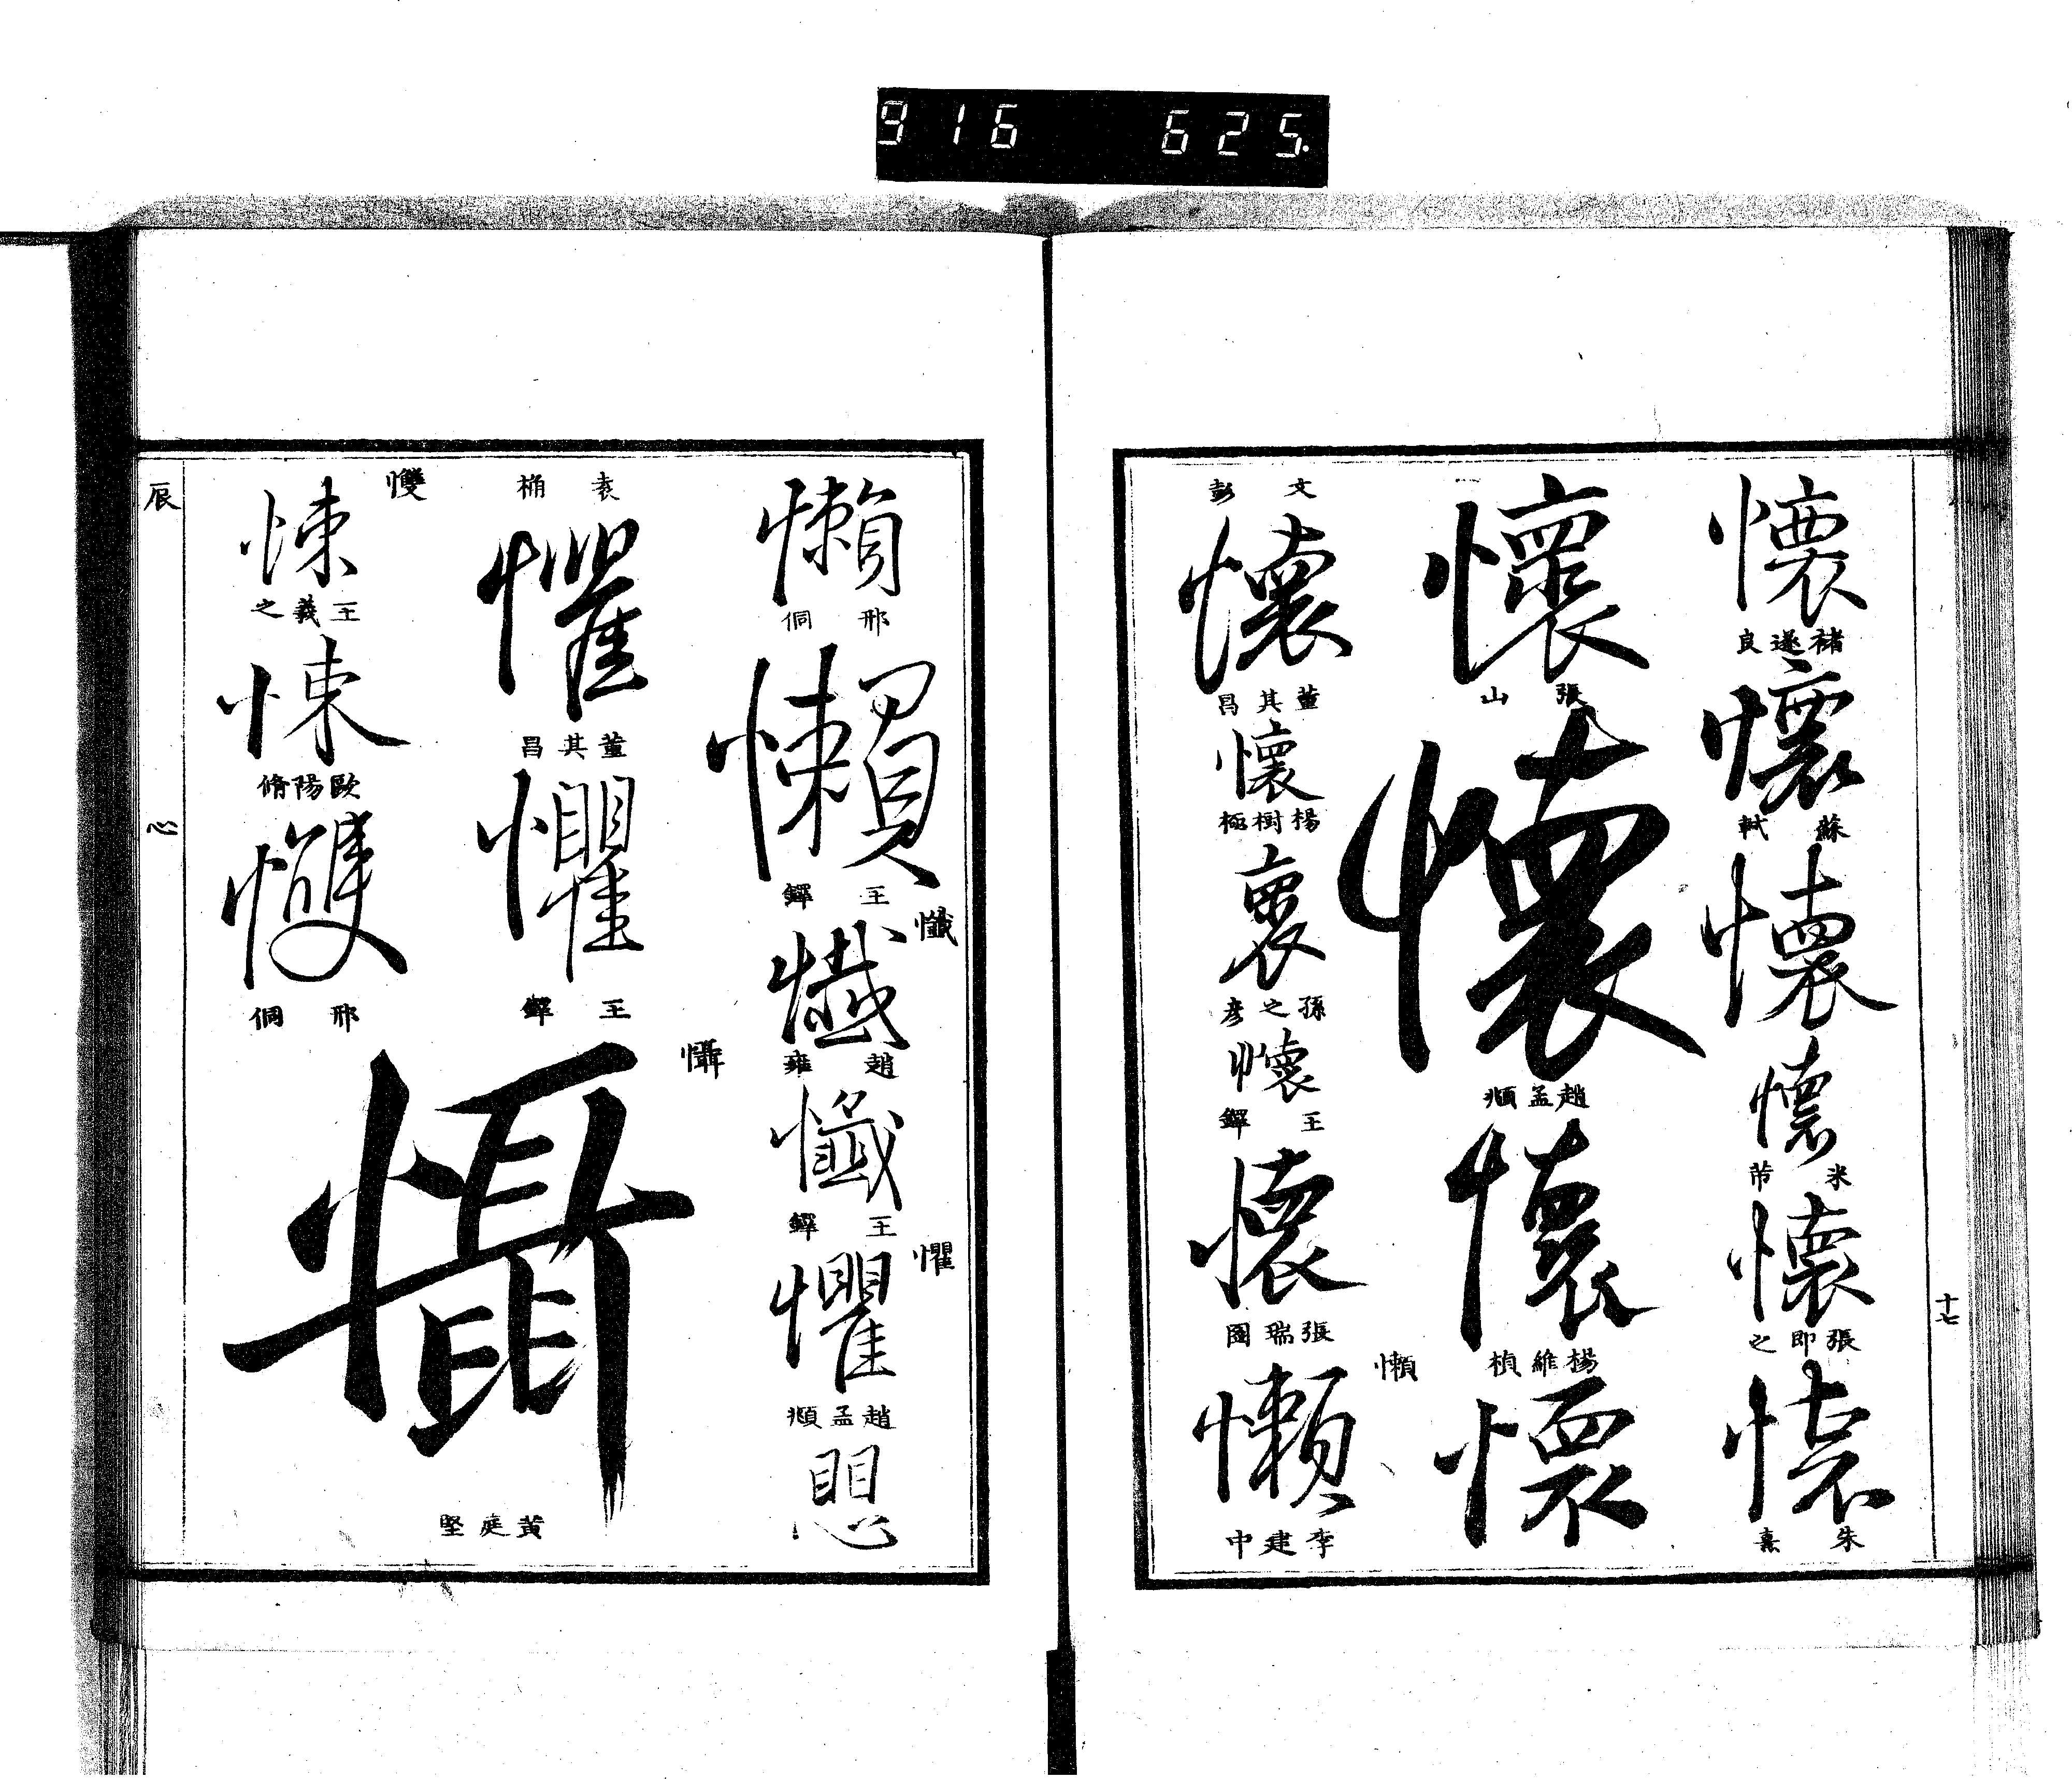 916 625.
十七
懷
褚遂良
懷
蘇軾
懷
懷
米芾
懷
張即之
懷
朱熹
懷
張山
懷
趙孟頫
懷
楊維楨
懷
文彭
懷
董其昌
懷
楊樹極
褱
孫之彦
懷
王鐸
懷
張瑞圖
懶
懶
李建中
懶
邢侗
懶
王鐸
懺
懺
趙雍
懺
王鐸
懼
懼
趙孟頫
思
袁桷
懼
董其昌
懼
王鐸
懾
懾
黃庭堅
愯
悚
王羲之
悚
歐陽脩
邢侗
辰
心